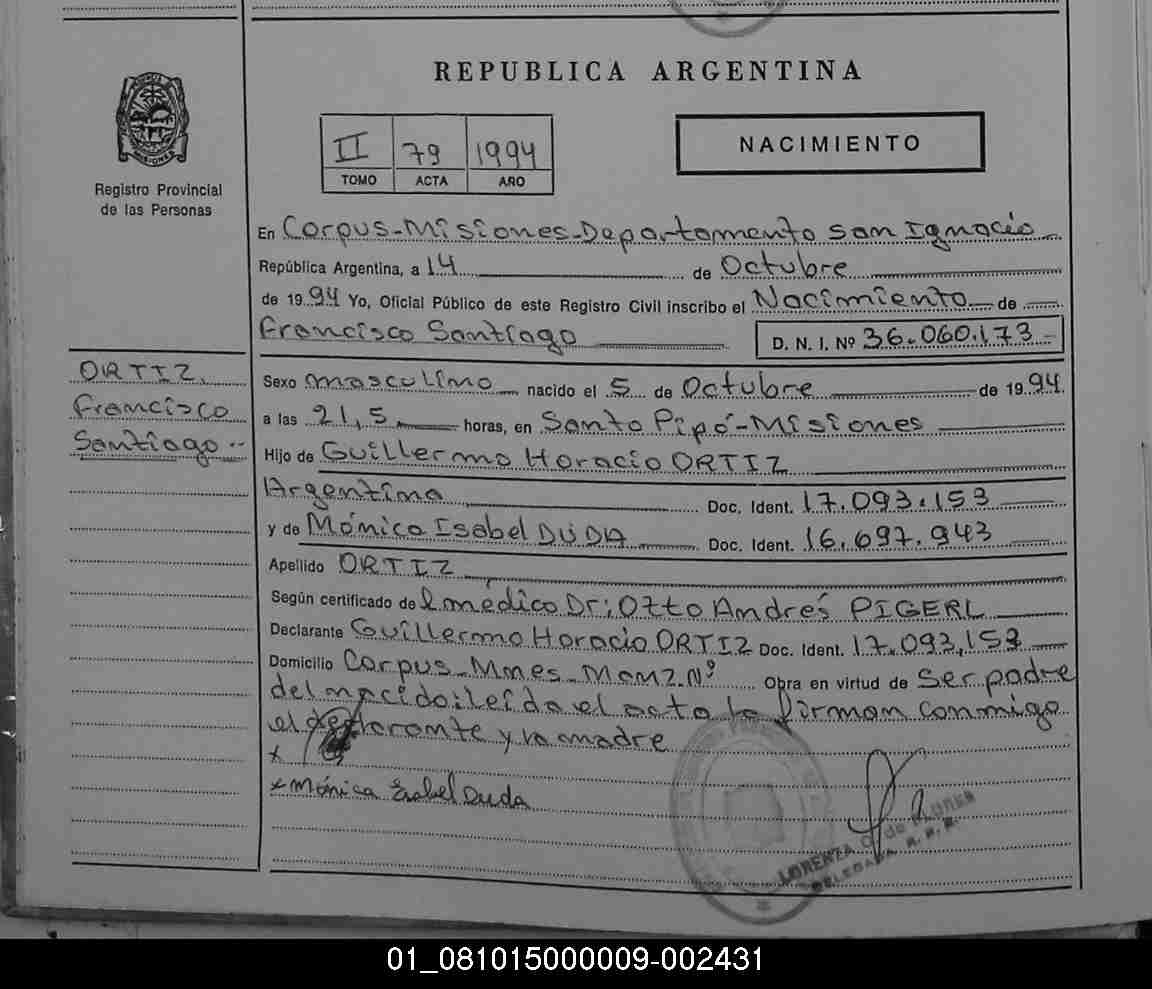 REPUBLICA ARGENTINA
MISIONES
Registro Provincial
de las Personas
II 79 1994
TOMO ACTA AÑO
NACIMIENTO
En Corpus-Misiones-Departamento San Ignacio
República Argentina, a 14 de Octubre
de 1994 Yo, Oficial Público de este Registro Civil inscribo el Nacimiento de
Francisco Santiago D. N. I. Nº 36.060.173
ORTIZ
Francisco
Santiago --
Sexo masculino nacido el 5 de Octubre de 1994
a las 21,5 horas, en Santo Pipó-Misiones
Hijo de Guillermo Horacio ORTIZ
Argentino Doc. Ident. 17.093.153
y de Mónica Isabel DUDA Doc. Ident. 16.697.943
Apellido ORTIZ
Según certificado del médico Dr: Otto Andrés PIGERL
Declarante Guillermo Horacio ORTIZ Doc. Ident. 17.093,153
Domicilio Corpus-Mnes-Manz.Nº Obra en virtud de Ser padre
del nacido: leída el acta la firman conmigo
el declarante y la madre
x
x Mónica Isabel Duda
LORENZA de FLORES
DELEGADA R. P. P.
01_081015000009-002431